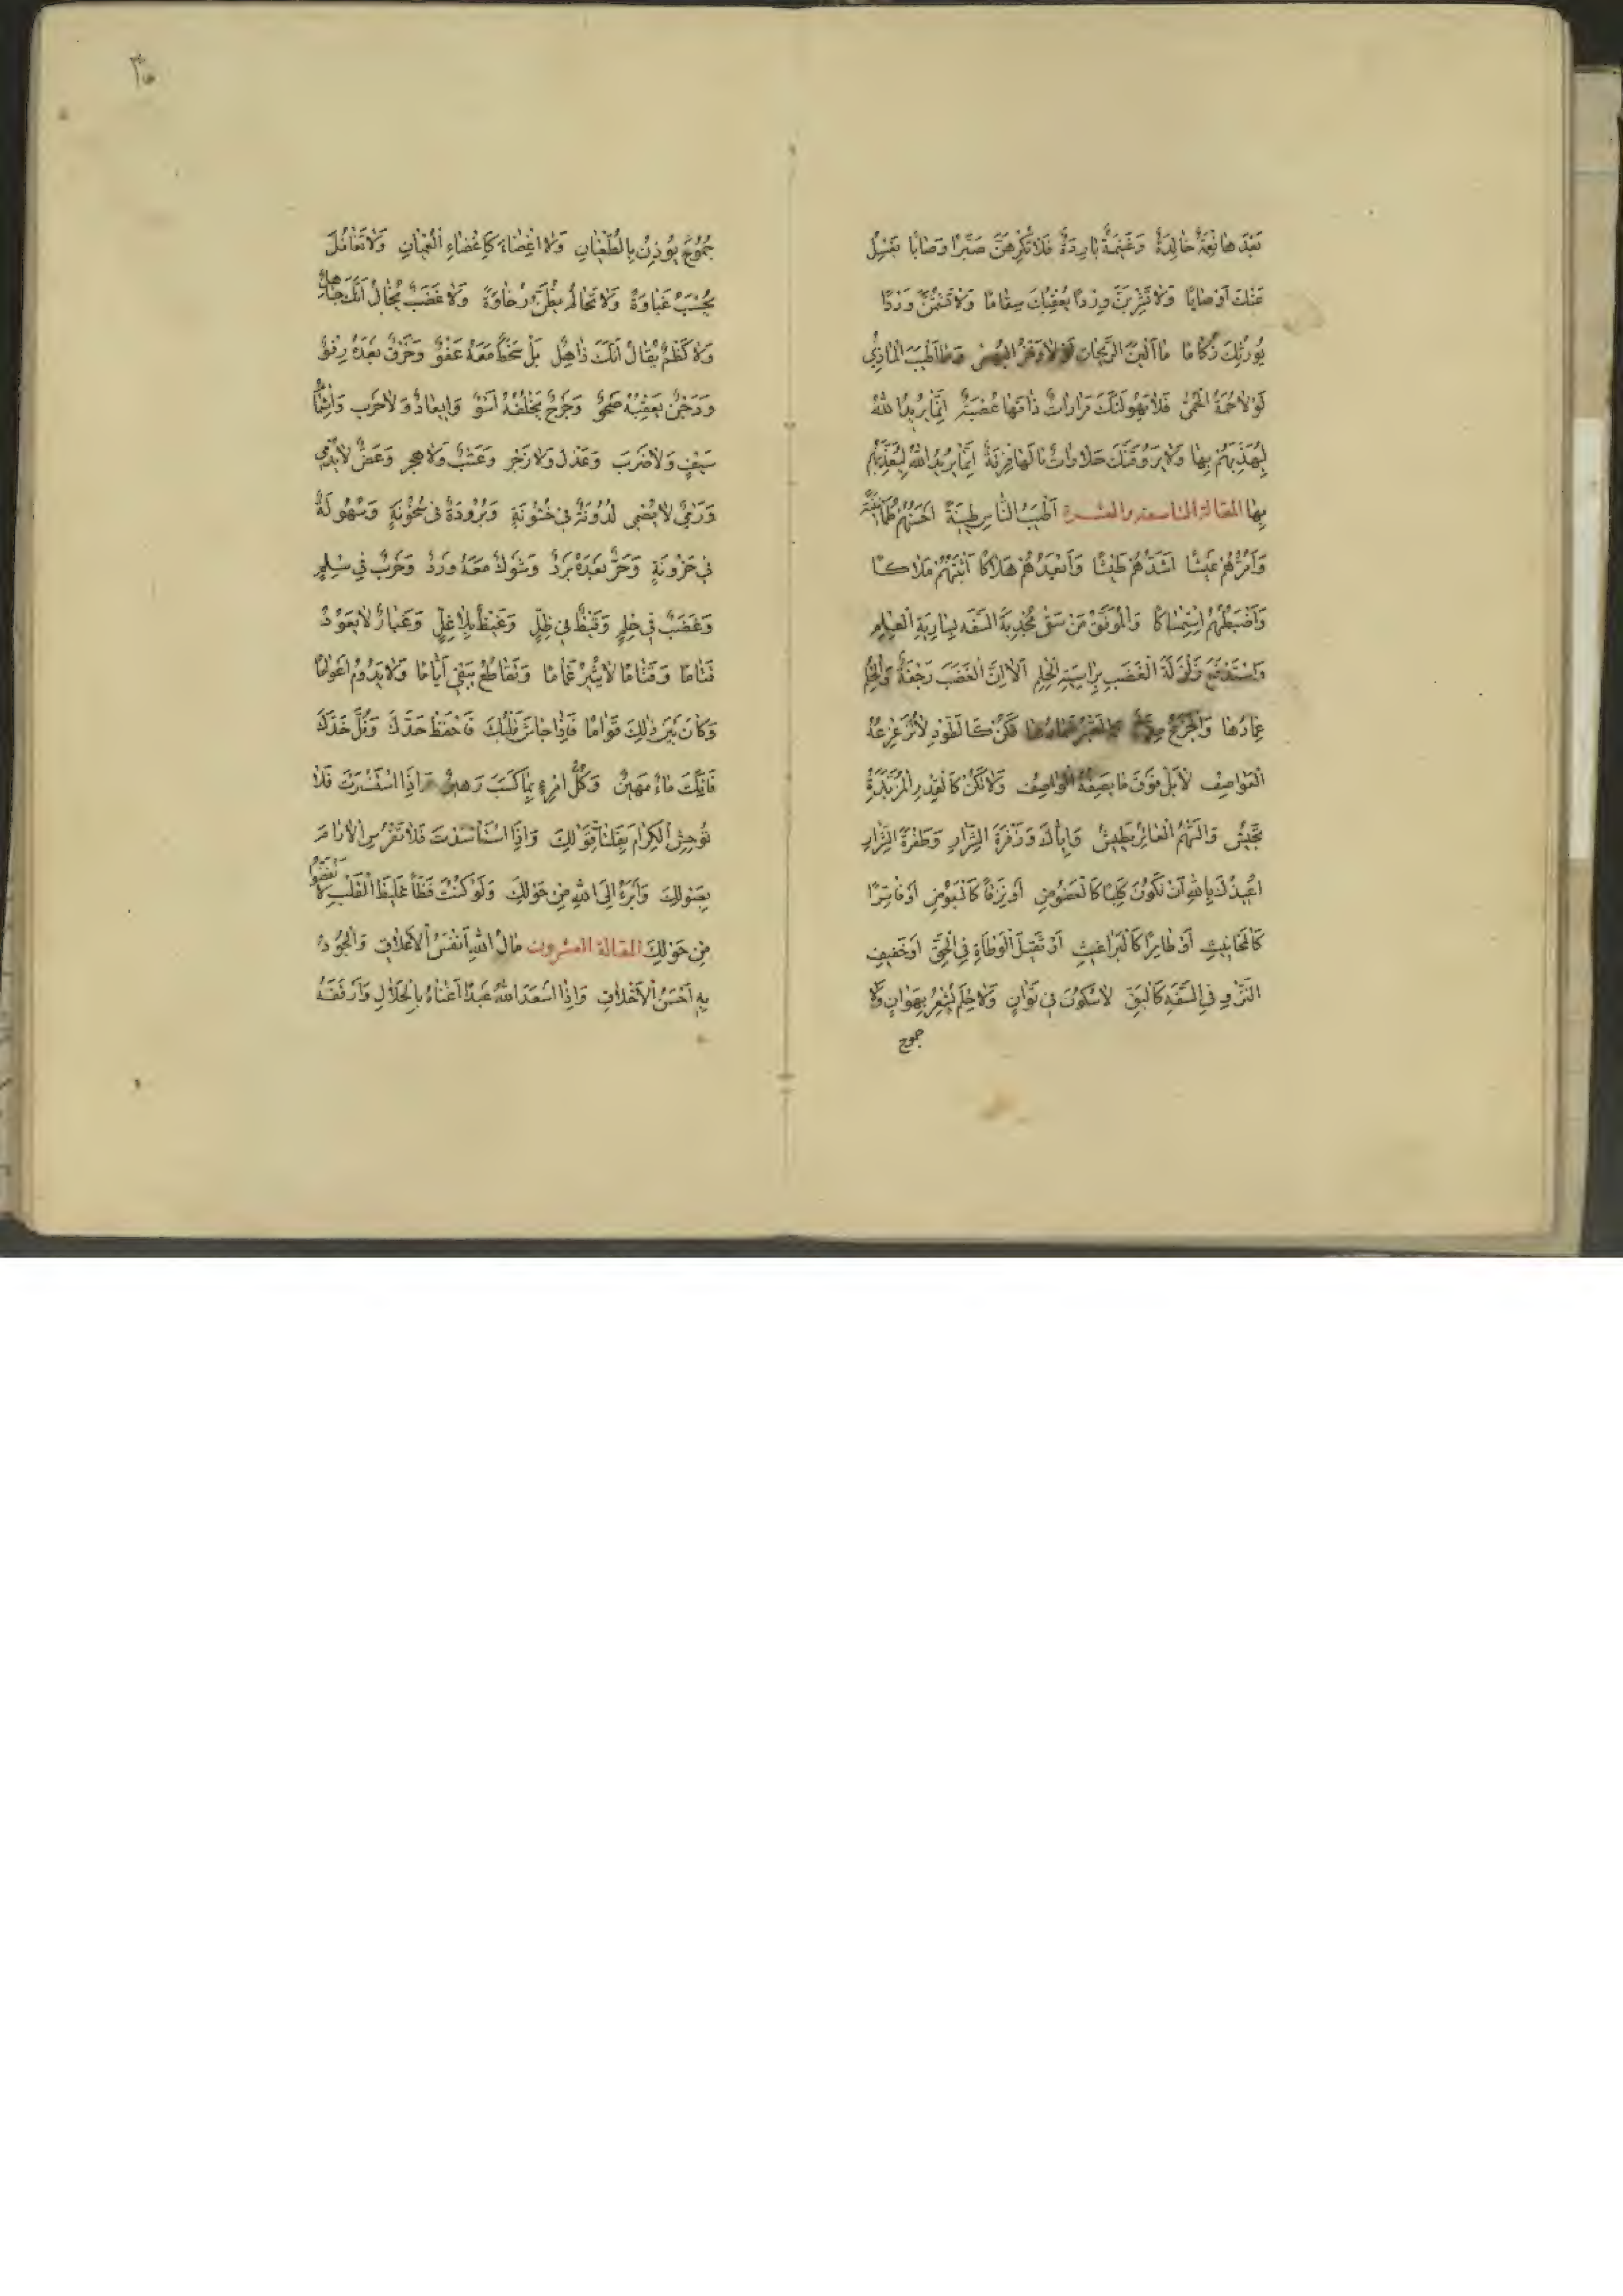 بَعْدَهَا نِعْمَةٌ خَالِدَةٌ وَغَنِيمَةٌ بَارِدَةٌ فَلَا تَكْرَهَنَّ صَبْرًا وَصَابًا يَغْسِلُ
عَنْكَ أَوْصَابًا وَلَا تَشْرَبَنَّ وِرْدًا يُعْقِبُكَ سِقَامًا وَلَا تَشُمَّنَّ وَرْدًا
يُورِثُكَ زُكَامًا مَا أَلْيَنَ الرَّيْحَانَ لَوْلَا وَخْزُ وَمَا أَطْيَبَ الْمَاذِيَّ
لَوْلَا حُمَةُ الْحُمَّى فَلَا يَهُولَنَّكَ مَرَارَاتٌ ذَاقَهَا عُصْبَةٌ إِنَّمَا يُرِيدُ اللهُ
لِيُهَذِّبَهُمْ بِهَا وَلَا يَرُوقَنَّكَ حَلَاوَاتٌ نَالَهَا فِرْقَةٌ إِنَّمَا يُرِيدُ اللهُ لِيُعَذِّبَهُمْ
بِهَا المقالة التاسعة والعشرة أَطْيَبُ النَّاسِ طِينَةً أَحْسَنُهُمْ طُمَأْنِينَةً
وَأَمَرُّهُمْ عَيْشًا أَشَدُّهُمْ طَيْشًا وَأَبْعَدُهُمْ هَلَاكًا أَثْبَتُهُمْ مَلَاكًا
وَأَضْبَطُهُمْ اسْتِمْسَاكًا وَالْمُوَفَّقُ مَنْ سَقَى مُجْدِبَةَ السَّفَهِ بِسَارِيَةِ الْعِلْمِ
وَاسْتَدْفَعَ زَلْزَلَةَ الْغَضَبِ بِرَاسِيَةِ الْحِلْمِ أَلَا إِنَّ الْغَضَبَ رَجْفَةٌ وَالْحِلْمُ
عِمَادُهَا وَالْجُرْحُ فَكُنْ كَالطَّوْدِ لَا تُزَعْزِعُهُ
الْعَوَاصِفُ لَا بَلْ فَوْقَ مَا يَصِفُهُ الْوَاصِفُ وَلَا تَكُنْ كَالْقِدْرِ الْمُزْبِدَةِ
تَجِيشُ وَالسَّهْمُ الْعَائِرُ يَطِيشُ وَإِيَّاكَ وَزَفْرَةَ الشَّرَارِ وَطَفْرَةَ الشَّرَارِ
أُعِيذُكَ بِاللهِ أَنْ تَكُونَ كَلِبًا كَالْعَضُوضِ أَوْ نَزِقًا كَالْبَعُوضِ أَوْ فَاتِرًا
كَالْمَخَانِيثِ أَوْ طَامِرًا كَالْبَرَاغِيثِ أَوْ ثَقِيلَ الْوَطْأَةِ فِي الْحَقِّ أَوْ خَفِيفَ
النَّزْوِ فِي السَّفَهِ كَالْبَقِّ لَا سُكُونَ فِي تَوَانٍ وَلَا حِلْمَ يُشْعِرُ بِهَوَانٍ وَلَا
جموح
٣٠
جُمُوحَ يُؤْذِنُ بِالطُّغْيَانِ وَلَا إِغْضَاءَ كَإِغْضَاءِ الْعُمْيَانِ وَلَا تَغَافُلَ
يُحْسَبُ غَبَاوَةً وَلَا تَحَالُمَ يُظَنُّ رَخَاوَةً وَلَا غَضَبٌ يُخَالُ أَنَّكَ جَاهِلٌ
وَلَا كَظْمٌ يُقَالُ أَنَّكَ ذَاهِلٌ بَلْ سَخَطٌ مَعَهُ عَفْوٌ وَخَرْقٌ بَعْدَهُ رِفْوٌ
وَدَجْنٌ يَعْقِبُهُ صَحْوٌ وَجُرْحٌ يَخْلُفُهُ أَسْوٌ وَإِيعَادٌ وَلَا حَرْبَ وَانْتِضَاءُ
سَيْفٍ وَلَا ضَرْبَ وَعَذْلٌ وَلَا زَجْرَ وَعَتْبٌ وَلَا هَجْرَ وَعَضٌّ لَا يُدْمِي
وَرَمْيٌ لَا يُصْمِي لُدُونَةٌ فِي خُشُونَةٍ وَبُرُودَةٌ فِي سُخُونَةٍ وَسُهُولَةٌ
فِي حُزُونَةٍ وَحَرٌّ بَعْدَهُ بَرْدٌ وَشَوْكٌ مَعَهُ وَرْدٌ وَحَرْبٌ فِي سِلْمٍ
وَغَضَبٌ فِي حِلْمٍ وَقَيْظٌ فِي ظِلٍّ وَغَيْظٌ بِلَا غِلٍّ وَغُبَارٌ لَا يَعُودُ
قَتَامًا وَقَتَامًا لَا يُثِيرُ غَمَامًا وَتَقَاطُعٌ يَبْقَى أَيَّامًا وَلَا يَدُومُ أَعْوَامًا
وَكَانَ بَيْنَ ذٰلِكَ قَوَامًا فَإِذَا جَاشَ قَلْبُكَ فَاحْفَظْ حَدَّكَ وَفُلَّ حَدَّكَ
فَإِنَّكَ مَاءٌ مَهِينٌ وَكُلُّ امْرِءٍ بِمَا كَسَبَ رَهِينٌ وَإِذَا اسْتَنْسَرْتَ فَلَا
تُوحِشِ الْكِرَامَ بِفَلَتَاتِ قَوْلِكَ وَإِذَا اسْتَأْسَدْتَ فَلَا تَفْرِسِ الْأَنَامَ
بِصَوْلِكَ وَابْرَءْ إِلَى اللهِ مِنْ حَوْلِكَ وَلَوْ كُنْتَ فَظًّا غَلِيظَ الْقَلْبِ لَا نْفَضُّوا
مِنْ حَوْلِكَ المقالة العشرون مَالُ اللهِ أَنْفَسُ الْأَعْلَاقِ وَالْجُودُ
بِهِ أَحْسَنُ الْأَخْلَاقِ وَإِذَا أَسْعَدَ اللهُ عَبْدًا أَغْنَاهُ بِالْحَلَالِ وَأَرْفَقَهُ